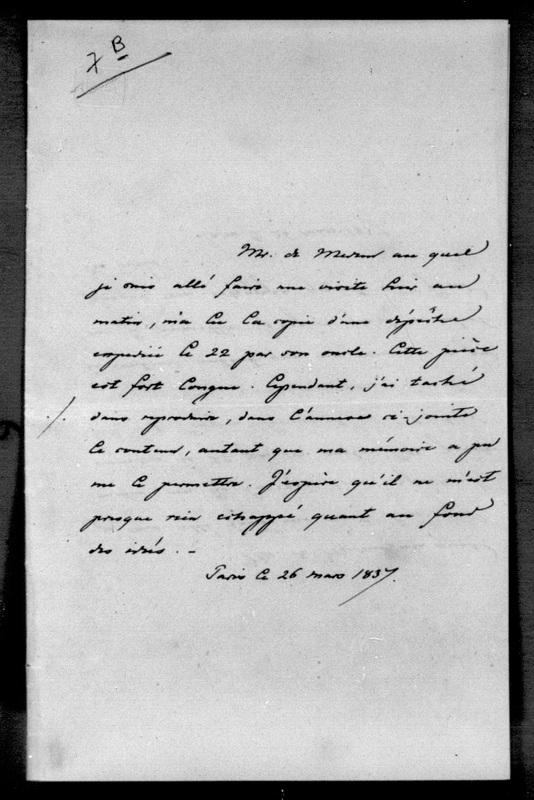 7 B
Mr. de Medem au quel
je suis allé faire une visite hier au
matin, m'a lu la copie d'une dépêche
expediée le 22 par son oncle. Cette pièce
est fort longue. Cependant, j'ai taché
./. d'en reproduire, dans l'annexe ci-jointe
le contenu, autant que ma mémoire a pu
me le permettre. J'espère qu'il ne m'est
presque rien echappé quant au fond
des idées. –
Paris le 26 mars 1837.